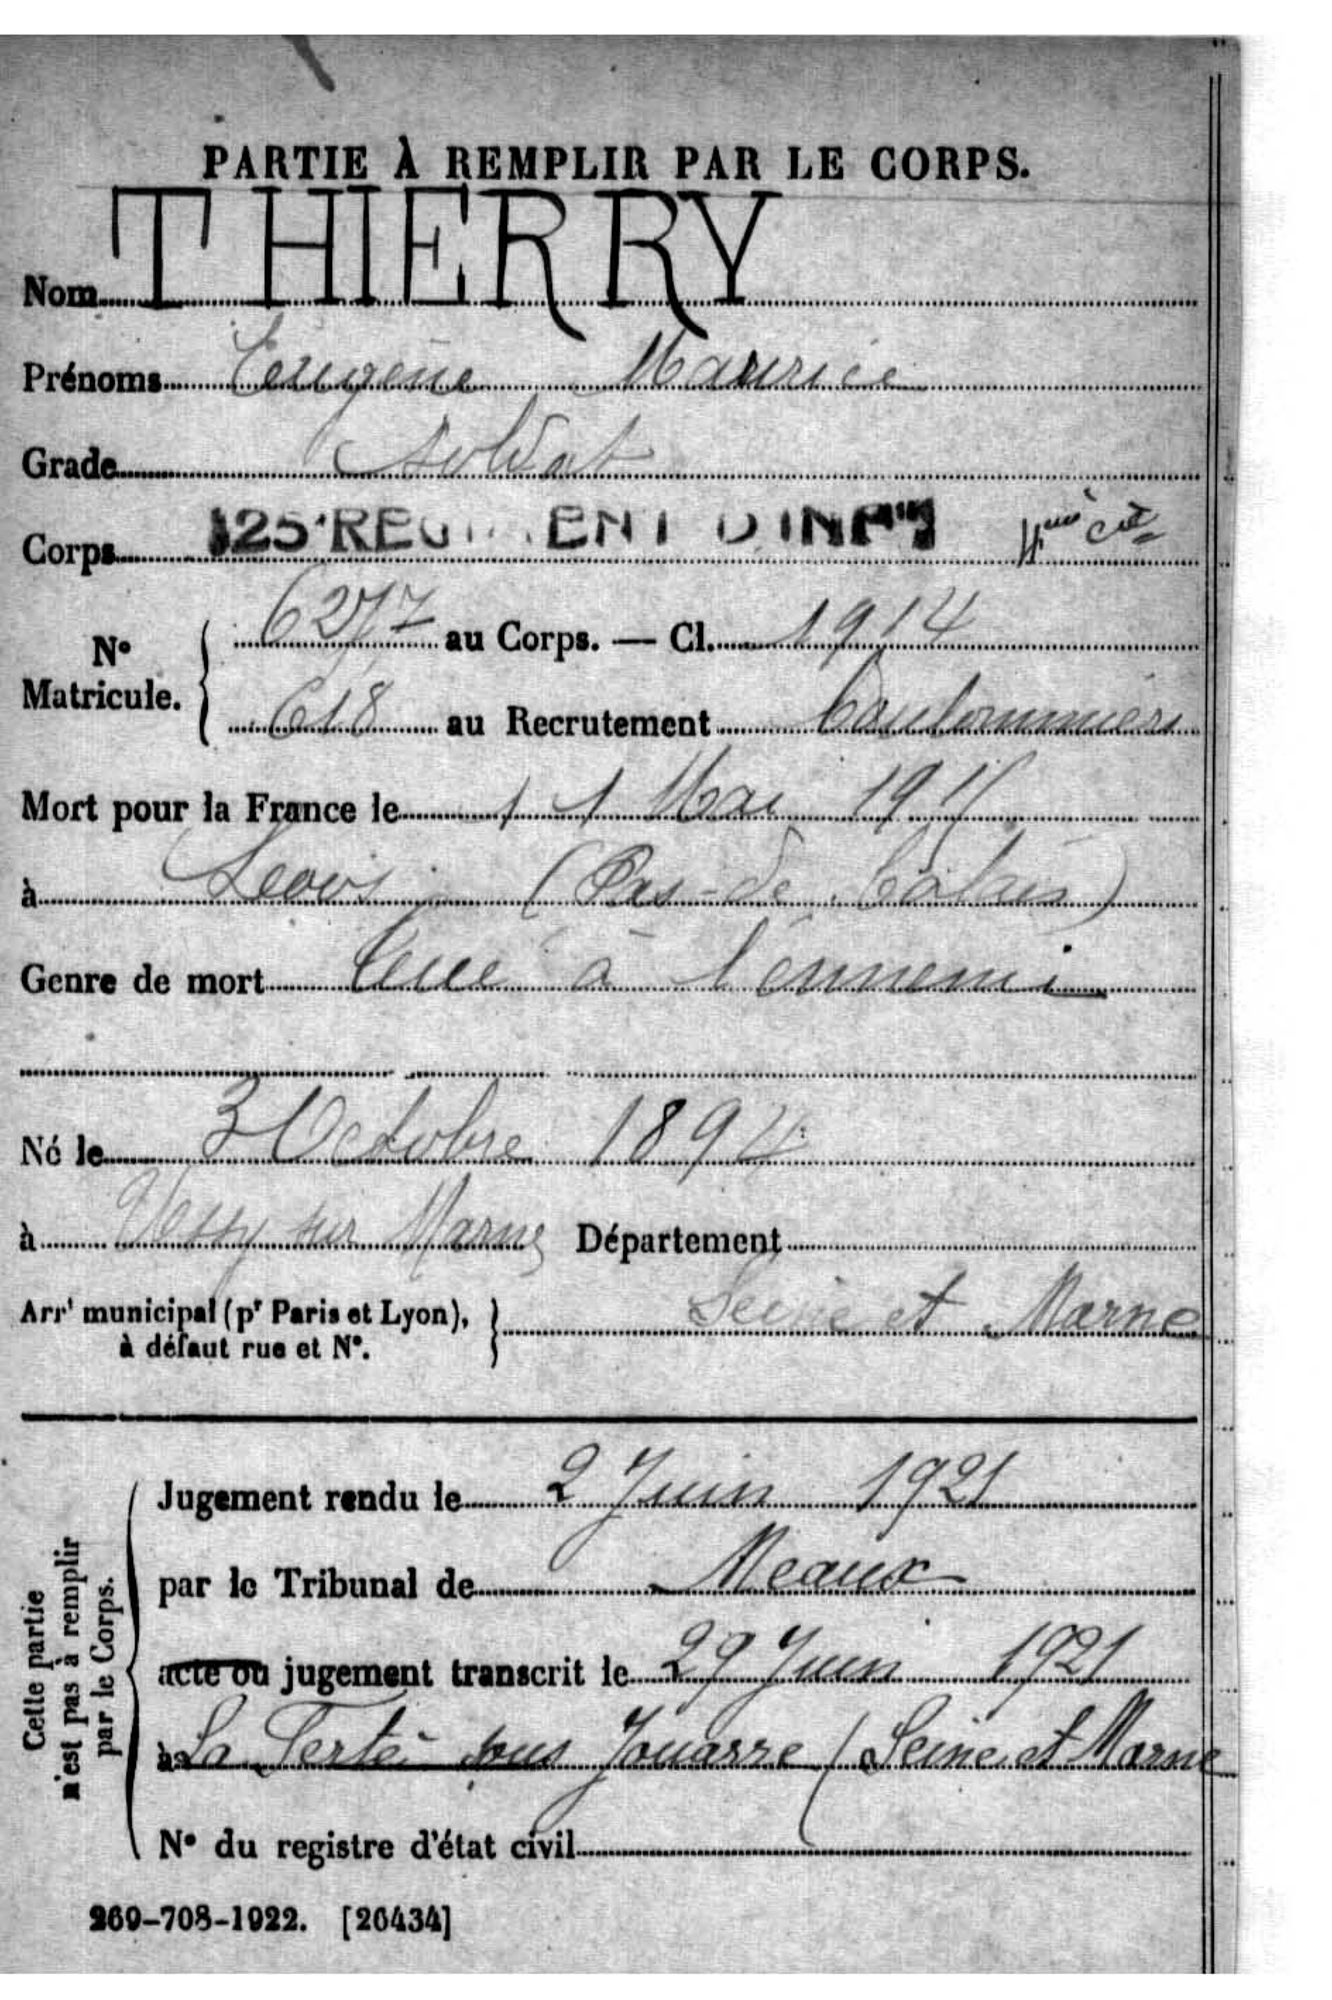 PARTIE À REMPLIR PAR LE CORPS.
Nom THIERRY
Prénoms Eugène Maurice
Grade Soldat
Corps 125 REGIMENT D'INF
N° Matricule. 6277 au Corps. — Cl. 1914
618 au Recrutement Coulommiers
Mort pour la France le 11 Mai 191
à Loos (Pas-de Calais)
Genre de mort Tué à l'ennemi
Né le 3 Octobre 1894
à sur Marne Département
Arrt municipal (pr Paris et Lyon), à défaut rue et N°. Seine et Marne
Cette partie n'est pas à remplir par le Corps.
Jugement rendu le 2 Juin 1921
par le Tribunal de Meaux
acte ou jugement transcrit le 29 Juin 1921
à La Ferté sous Jouarre (Seine et Marne
N° du registre d'état civil
269-708-1922. [26434]